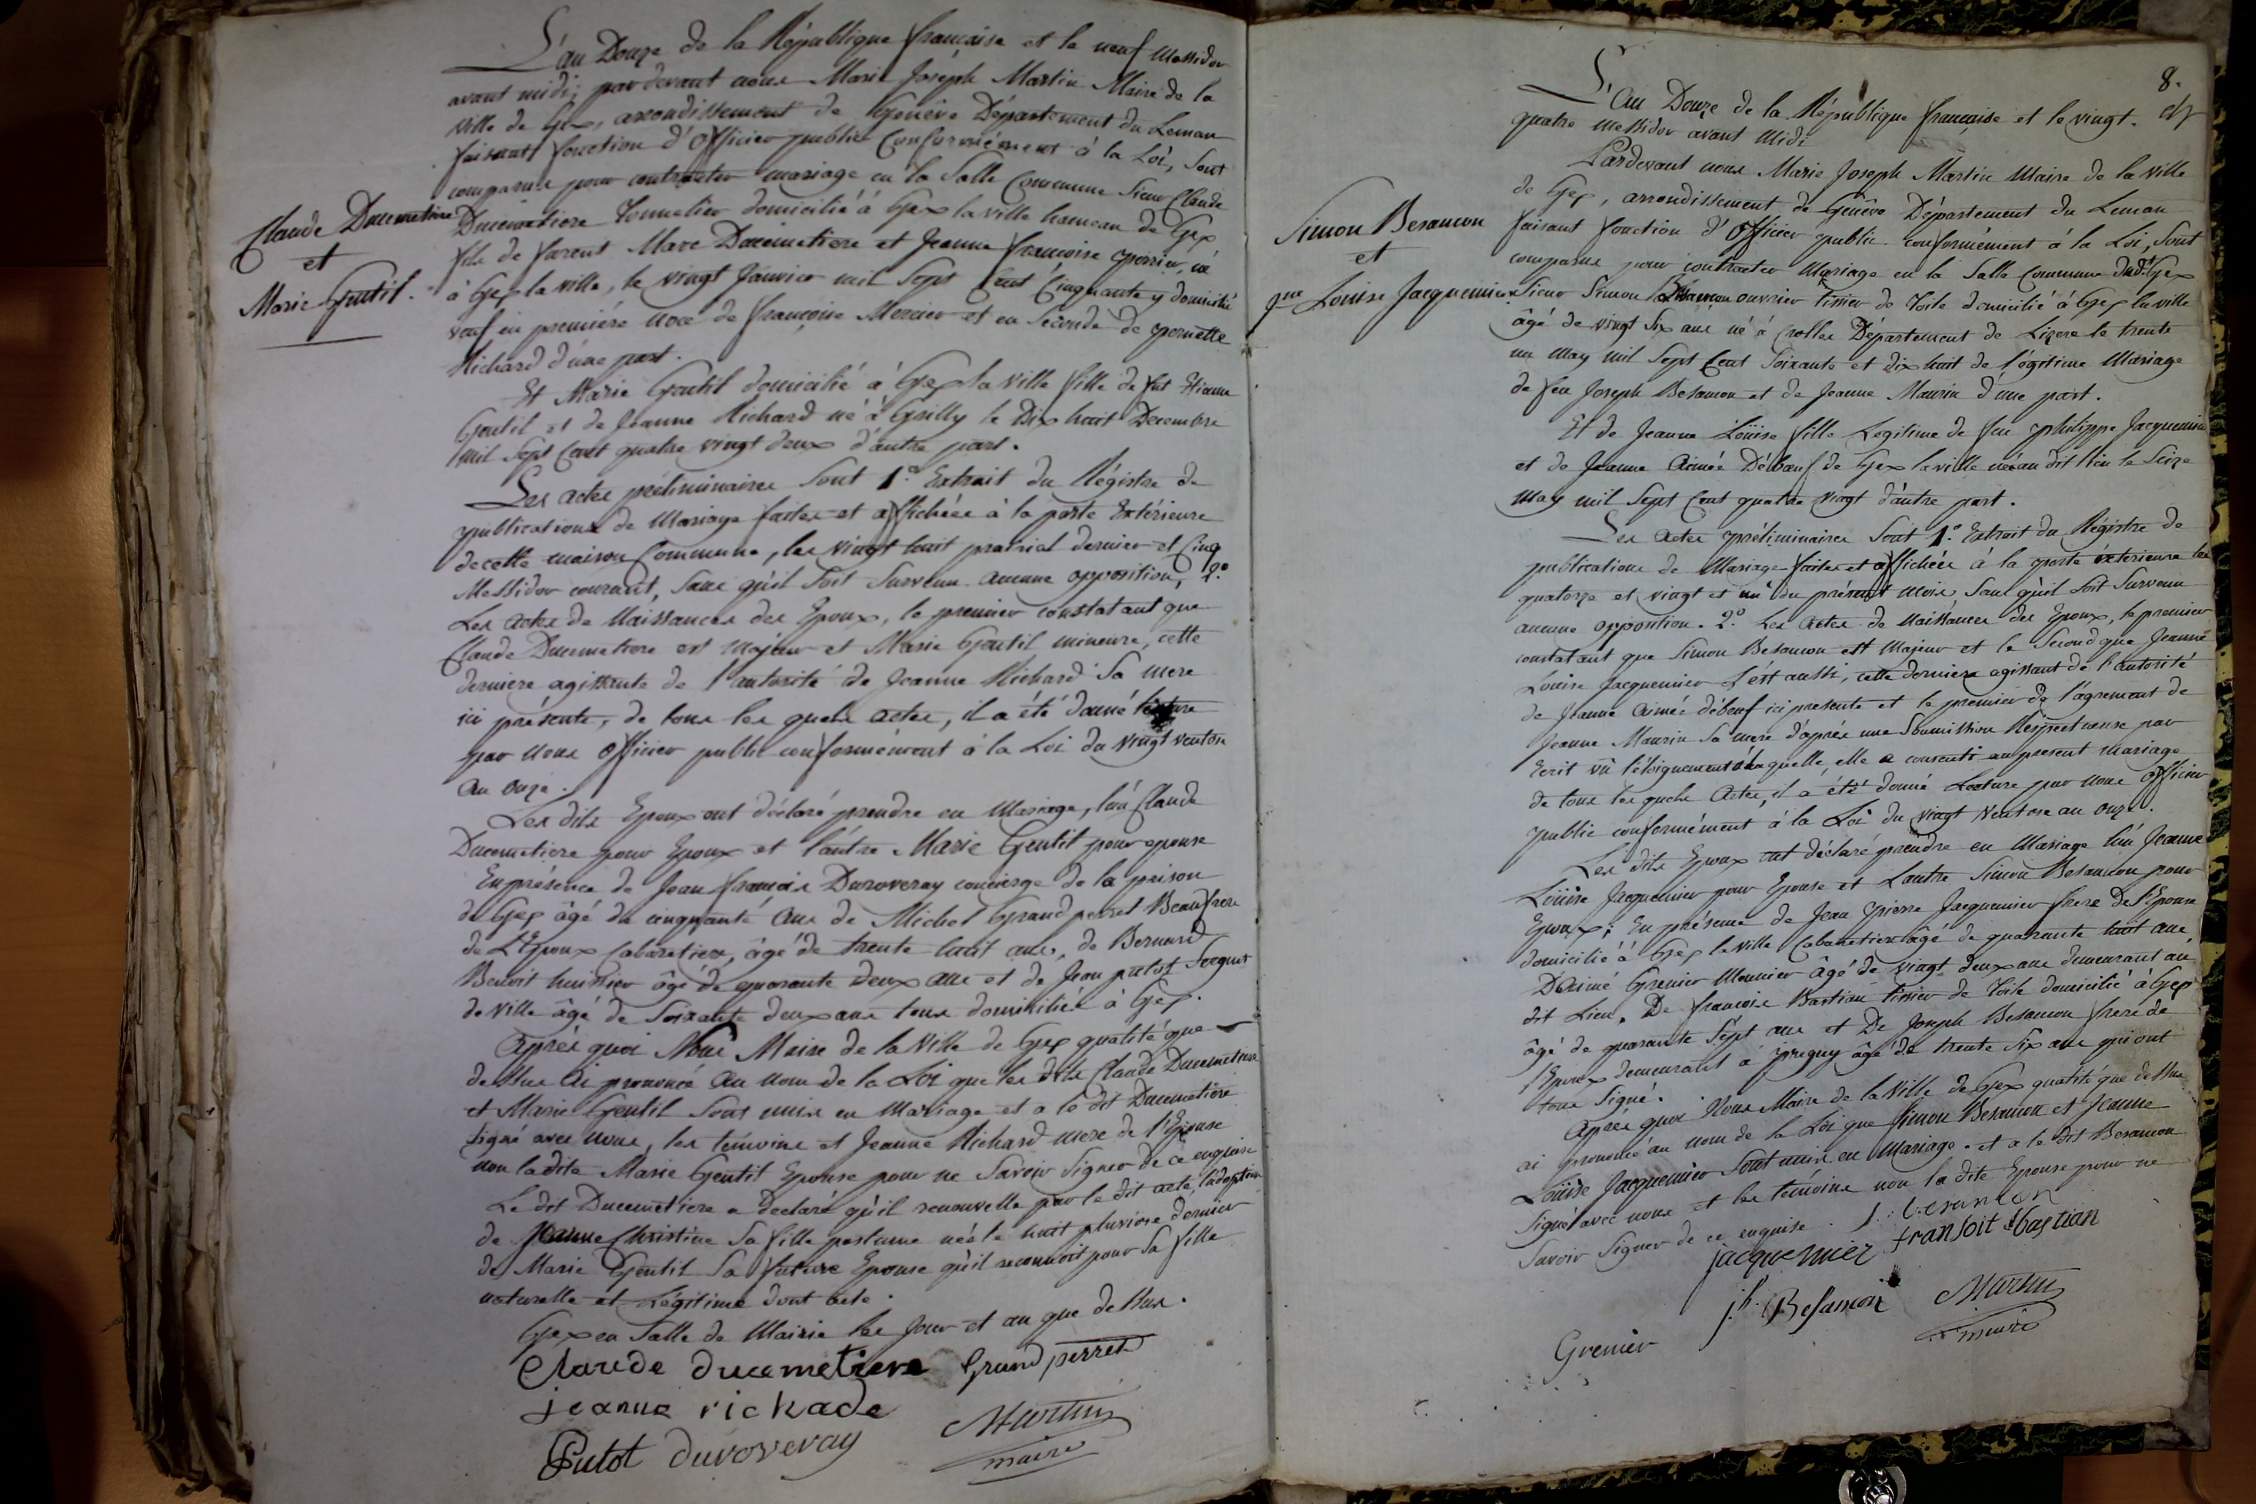 L'an Douze de la République française et le neuf Messidor
avant midi, par devant nous Marie Joseph Martin Maire de la
ville de Gex, arrondissement de Genêve Département du Leman
faisant fonction d'officier public Conformément à la Loi, Sont
comparus pour contracter mariage en la Salle Commune Sieur Claude
Claude Ducemetiere
et
Marie Gentil.
Ducemetiere Tonnelier domicilié à Gex la ville hameau de Gex
fils de furent Marc Ducimetiere et Jeanne françoise né
à Gex la ville, le vingt Janvier mil Sept Cent Cinquante y domicilié
veuf en premiére noce de françoise Mercier et en Seconde de pernette
Richard d'une part.
Et Marie Gentil domicilié à Gex la ville fille de fut Etienne
Gentil et de Jeanne Richard né à Grilly le Dix huit Decembre
mil Sept Cent quatre vingt deux d'autre part.
Les actes préliminaires Sont 1.° Extrait du Régistre de
publications de Mariage faites et affichées à la porte Extérieure
de cette maison Commune, les vingt huit prairial dernier et Cinq
Messidor courant, Sans qu'il Soit Survenu aucune opposition, 2.°
Les actes de Naissances des Epoux, le premier constatant que
Claude Ducemetiere est Majeur et Marie Gentil mineure, cette
derniere agissante de l'autorité de Jeanne Richard Sa mere
ici présente, de tous les quels actes, il a été donné lecture
par nous officier public conformément à la Loi du vingt ventose
an onze.
Les dits Epoux ont déclaré prendre en Mariage, l'un Claude
Ducemetiere pour Epoux et l'autre Marie Gentil pour epouse
En présence de Jean françois Duroveray concierge de la prison
de Gex âgé de cinquante ans de Michel Grandperret Beaufrere
de L'Epoux Cabaretiere, âgé de trente huit ans, de Bernard
Benoit huissier âgé de quarante deux ans et de Jean putot Sergent
de ville âgé de Soixante deux ans tous domiciliés à Gex.
Aprés quoi Nous Maire de la Ville de Gex qualité que
dessus ai prononcé au nom de la Loi que les dits Claude Ducemetiere
et Marie Gentil Sont unis en Mariage et a le dit Ducemetiere
Signé avec nous, les temoins et Jeanne Richard mere de l'Epouse
non la dite Marie Gentil Epouse pour ne Savoir Signer de ce enquise
Le dit Ducemetiere a declaré qu'il renouvelle par le dit acte, l'adoption
de Jeanne Christine Sa fille née le huit pluviose dernier
de Marie Gentil Sa future Epouse qu'il reconnoit pour Sa fille
naturelle et Légitime dont acte.
Gex en Salle de Mairie les Jour et an que dessus.
Claude ducemetiere Grand perret
jeanne rickade
Putot duroveray Martin
maire
8.
L'an Douze de la République française et le vingt
quatre Messidor avant Midi
Pardevant nous Marie Joseph Martin Maire de la ville
de Gex, arrondissement de Genêve Département du Leman
faisant fonction d'officier public conformément à la Loi, Sont
comparus pour contracter Mariage en la Salle Commune dud.t Gex
Simon Besancon
et
jne Louise Jacquemier
Sieur Simon Besancon ouvrier tissier de Toile domicilié à Gex la ville
âgé de vingt Six ans né à Crolles Département de Lizere le trente
un May mil Sept Cent Soixante et dix huit de légitime Mariage
de feu Joseph Besancon et de Jeanne Maurin d'une part.
Et de Jeanne Loüise fille Legitime de feu philippe Jacquemier
et de Jeanne Aimée Débœuf de Gex la ville née au dit lieu le Seize
May mil Sept Cent quatre vingt d'autre part.
Les actes préliminaires Sont 1.° Extrait du Régistre de
publications de Mariage faites et affichées à la porte extérieure les
quatorze et vingt et un du présent mois, Sans qu'il Soit Survenu
aucune opposition. 2.° Les actes de Naissances des Epoux, le premier
constatant que Simon Besancon est Majeur et le Second que Jeanne
Louise Jacquemier l'est aussi, cette derniere agissant de l'autorité
de Jeanne Aimée débœuf ici presente et le premier de l'agrement de
Jeanne Maurin Sa mere d'aprés une Soumission Respectueuse par
Ecrit vû l'éloignement laquelle, elle a consenti au present mariage
de tous les quels Actes, il a été donné Lecture par nous officier
public conformément à la Loi du vingt Ventose an onze.
Les dits Epoux ont déclaré prendre en Mariage l'un Jeanne
Loüise Jacquemier pour Epouse et Lautre Simon Besancon pour
Epoux; En présence de Jean pierre Jacquemier frere de l'Epouse
domicilié à Gex la ville Cabaretier âgé de quarante huit ans
D'aimé Grenier Meunier âgé de vingt deux ans demeurant au
dit Lieu. De françois Bastian tissier de Toile domicilié à Gex
âgé de quarante Sept ans et De Joseph Besancon frere de
l'Epoux demeurant à pregny âgé de trente Six ans qui ont
tous Signé.
Aprés quoi Nous Maire de la Ville de Gex qualité que dessus
ai prononcé au nom de la Loi que Simon Besancon et Jeanne
Loüise Jacquemier Sont unis en Mariage. et a le dit Besancon
Signé avec nous et les témoins non la dite Epouse pour ne
Savoir Signer de ce enquise.
jacquemier fransoit bastian
jh. Besancon Martin
maire
Grenier